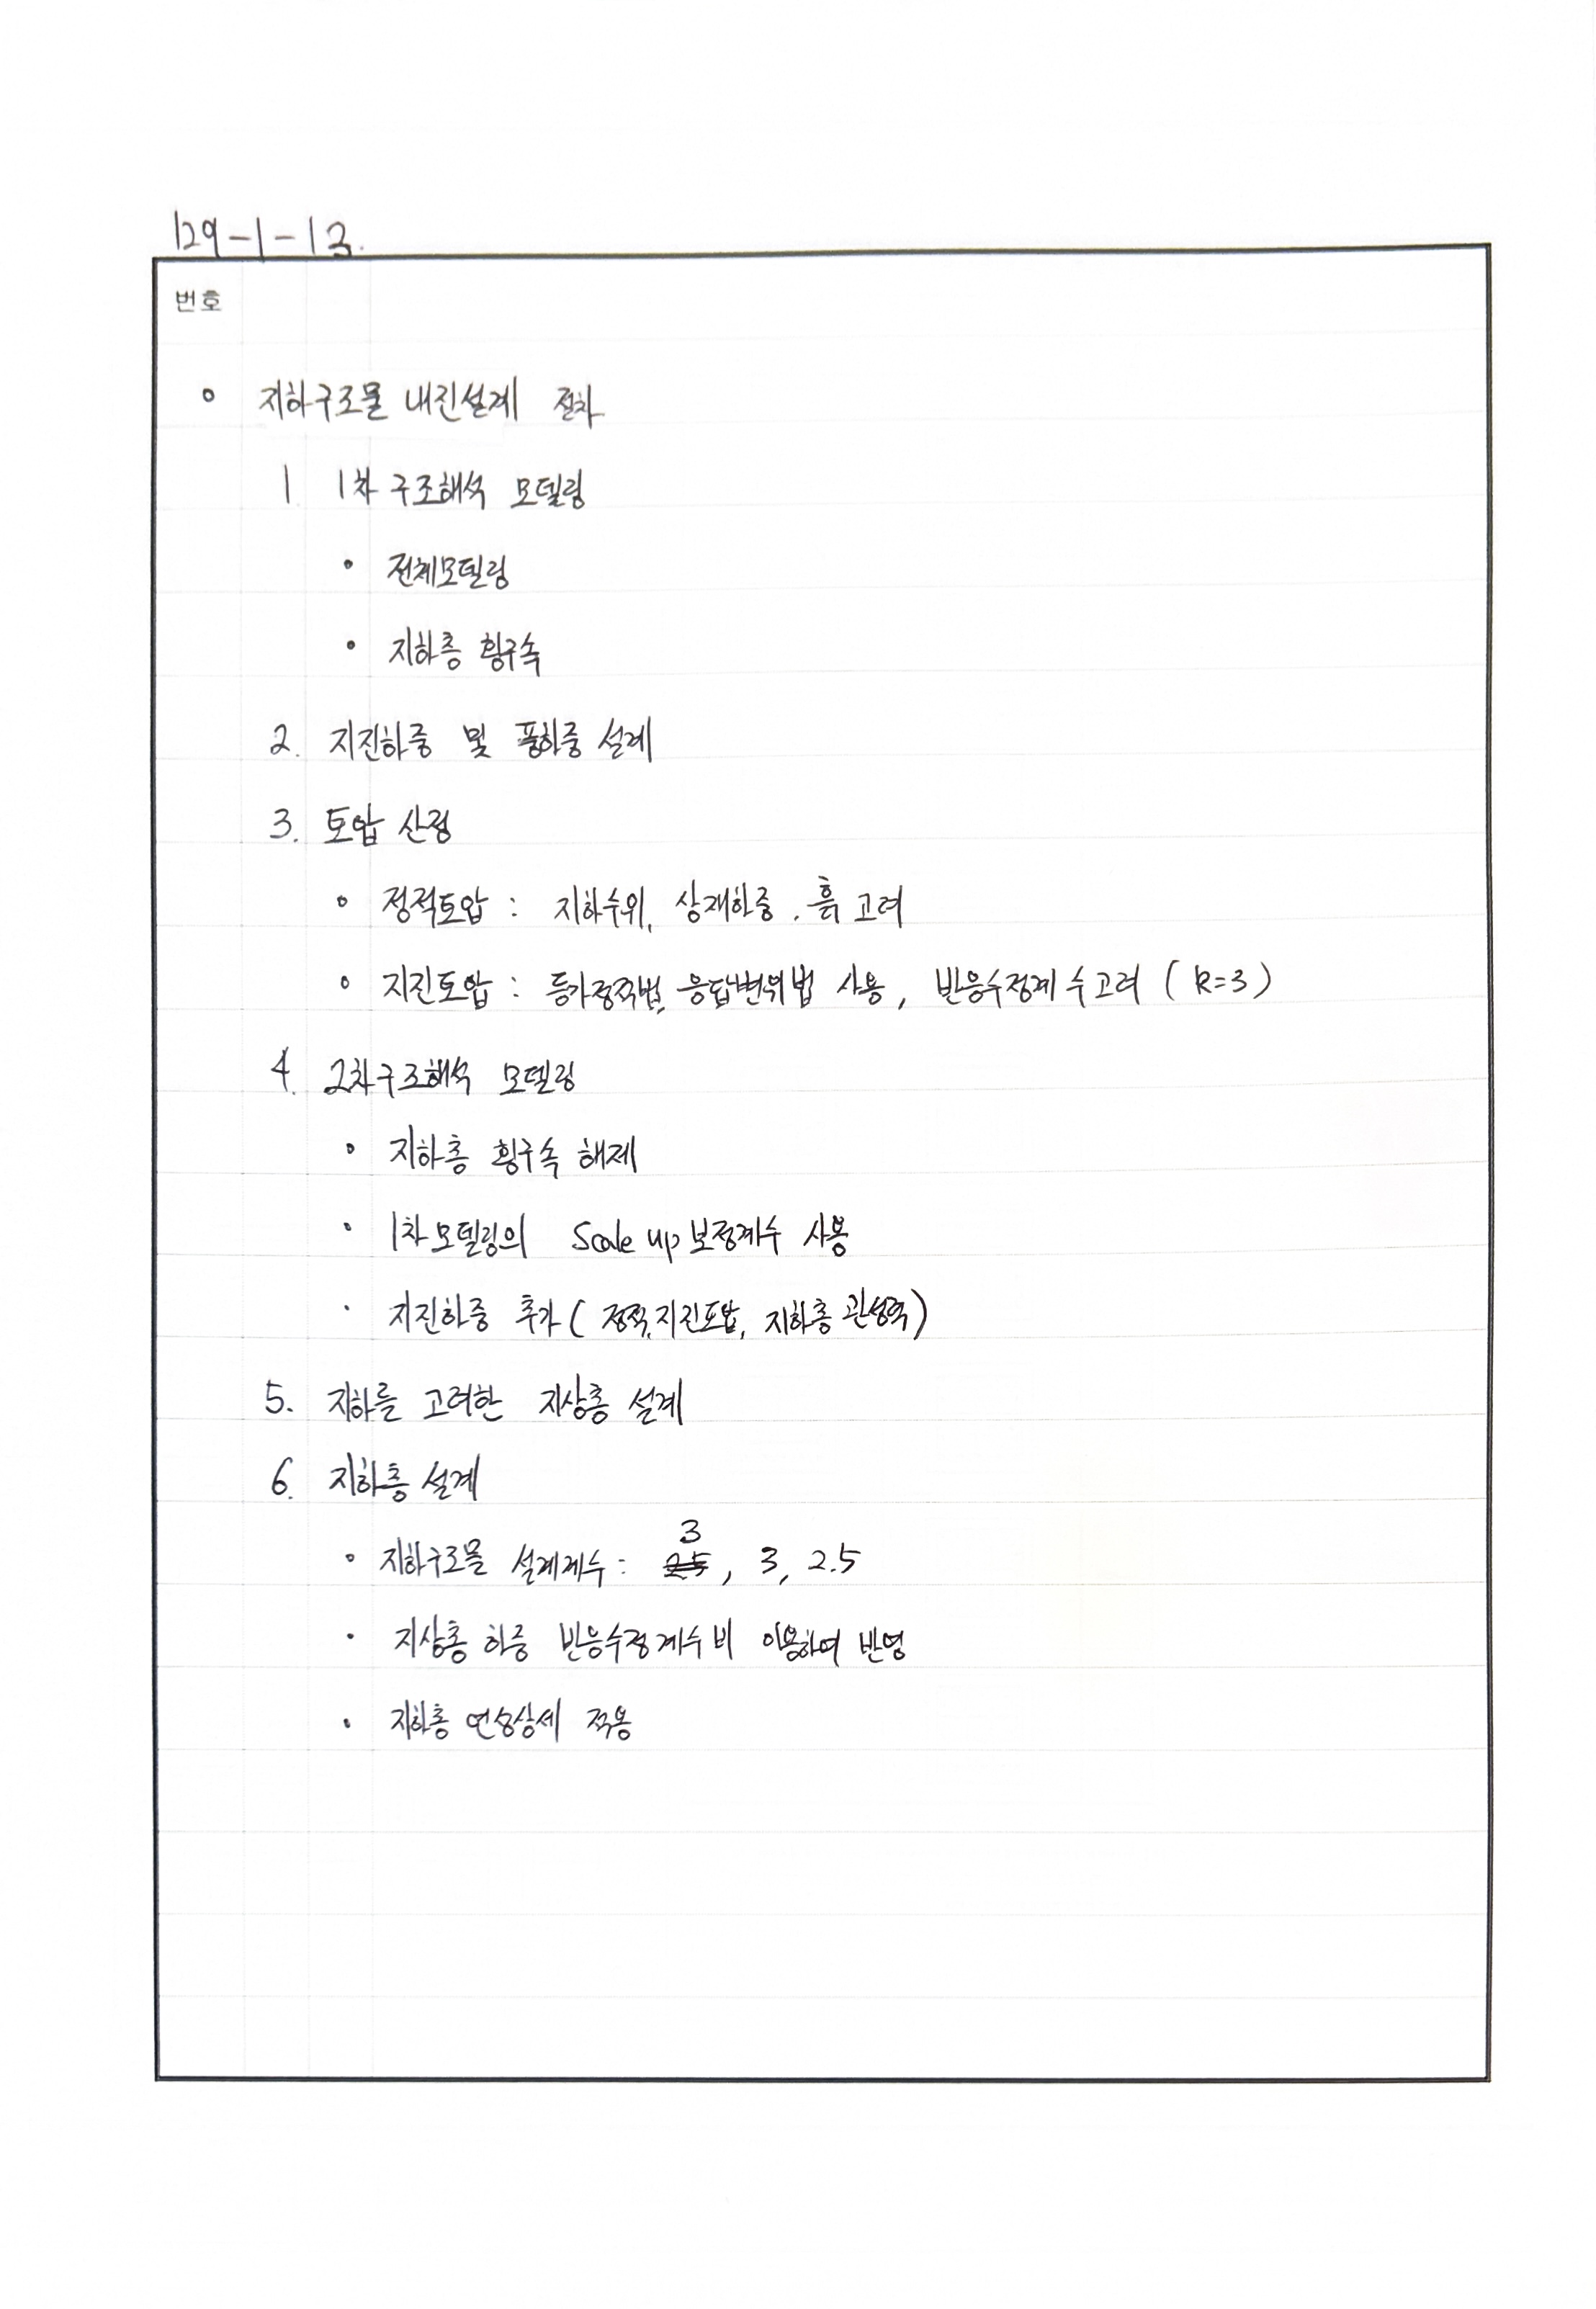 129-1-13.
번호
지하구조물 내진설계 절차
1 1차 구조해석 모델링
• 전체모델링
• 지하층 횡구속
2. 지진하중 및 풍하중 설계
3. 토압 산정
• 정적토압 : 지하수위, 상재하중, 흙 고려
• 지진토압 : 등가정적법, 응답변위법 사용, 반응수정계수고려 (R=3)
4. 2차구조해석 모델링
• 지하층 횡구속 해제
• 1차모델링의 Scale up 보정계수 사용
• 지진하중 추가 (정적,지진토압, 지하층 관성력)
5. 지하를 고려한 지상층 설계
6. 지하층 설계
• 지하구조물 설계계수 : 3, 3, 2.5
• 지상층 하중 반응수정계수비 이용하여 반영
• 지하층 연성상세 적용